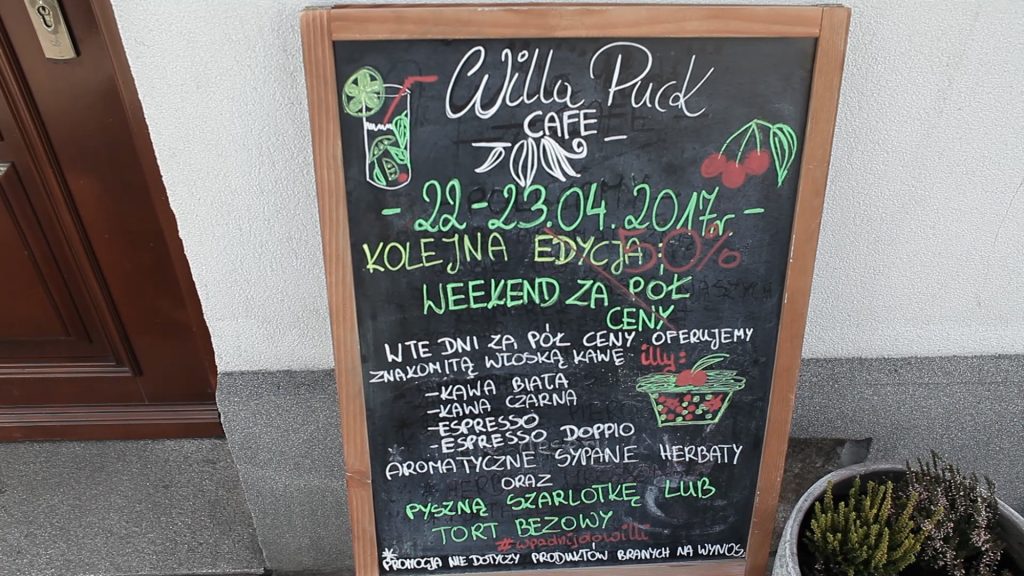 Willa Puck
CAFE
- 22-23.04.2017r. -
KOLEJNA EDYCJA: 50%
WEEKEND ZA PÓŁ
CENY
W TE DNI ZA PÓŁ CENY OFERUJEMY
ZNAKOMITĄ WŁOSKĄ KAWĘ illy:
-KAWA BIAŁA
-KAWA CZARNA
-ESPRESSO
-ESPRESSO DOPPIO
AROMATYCZNE SYPANE HERBATY
ORAZ
PYSZNĄ SZARLOTKĘ LUB
TORT BEZOWY
#wpadnijdowilli
*PROMOCJA NIE DOTYCZY PRODUKTÓW BRANYCH NA WYNOS.